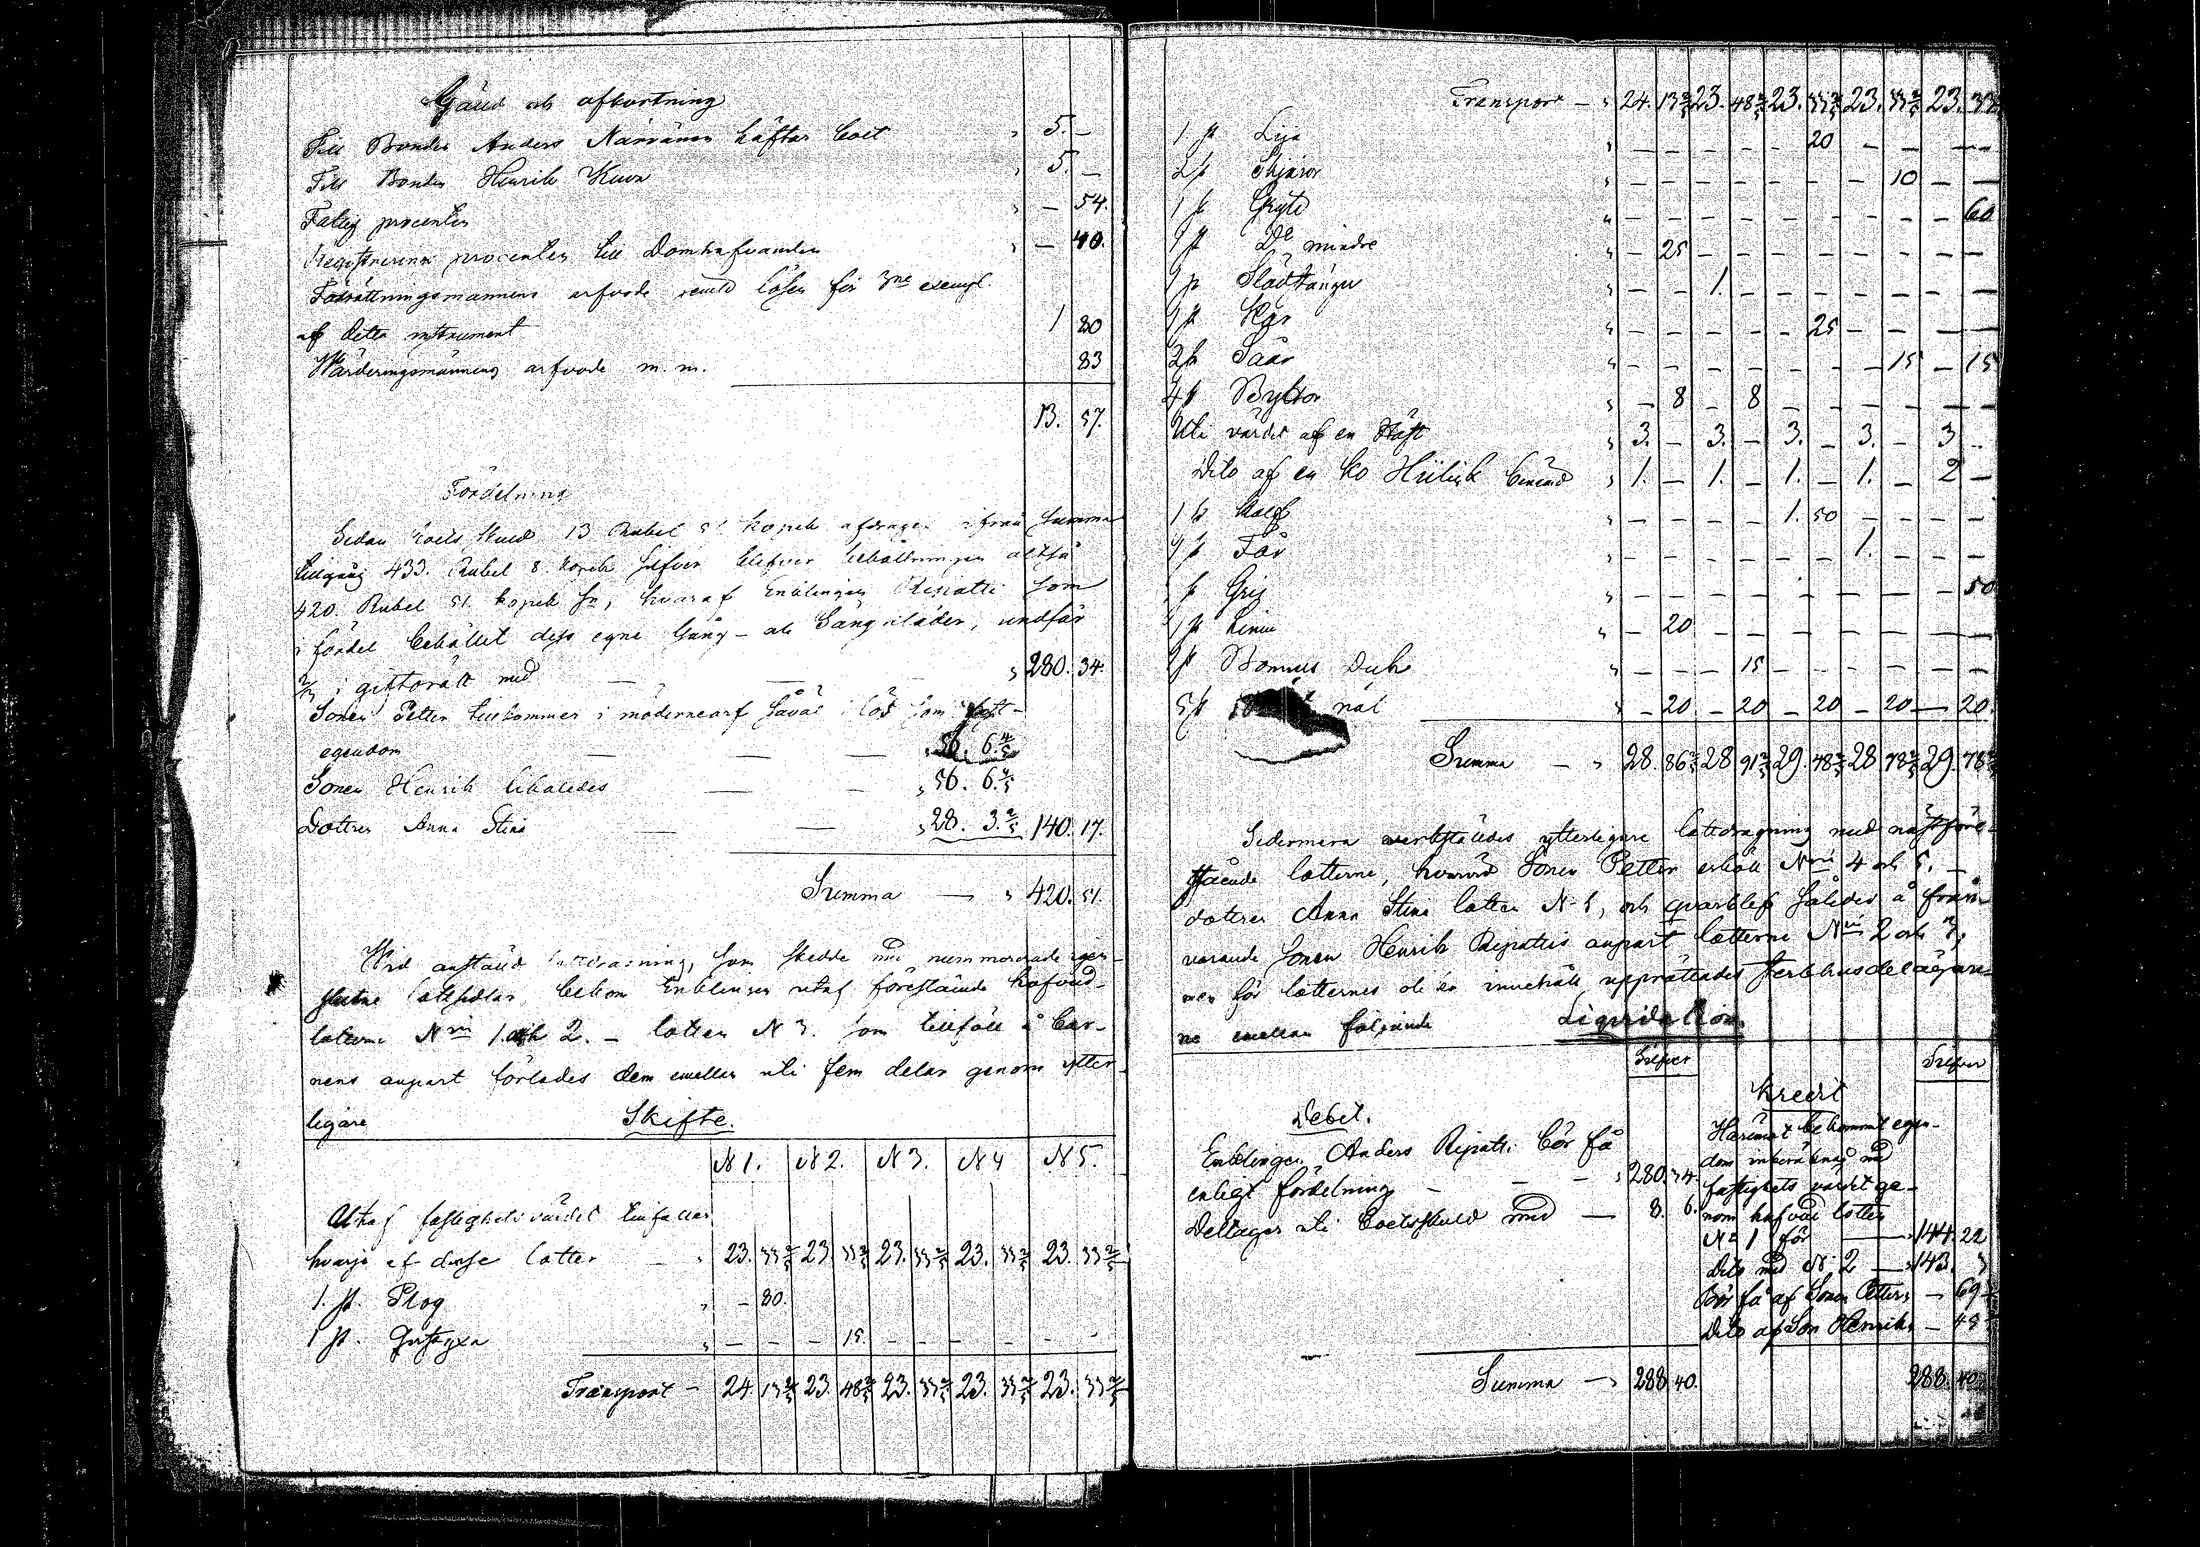 Gäld och afkortning
Till Bonden Anders Närvänen häftar boet " 5. –
Till Bonden Henrik Kuva " 5. –
Fattig procenten " – 54.
Registrerings procenten till Domhafvanden " – 40.
Förrättningsmannens arfvode jemte lösen för 3ne exempl.
af detta instrument 1 80
Wärderingsmännens arfvode m. m. 83
13. 57.
Fördelning
Sedan boets skuld 13 Rubel 57 kopek afdragen ifrån Summa
tillgång 433. Rubel 8. kopek silfver blifver behållningen altså
420. Rubel 51 kopek Sr, hvaraf Enklingen Ripatti som
i fördel behållit dess egne Gång- och Sängkläder, undfår
2/3 i giftorätt med — — " 280. 34.
Sonen Petter tillkommer i mödernearf såväl i lös som fast-
egendom — — — " 56. 6 4/5
Sonen Henrik likaledes — — " 56. 6 4/5
Dottren Anna Stina — — " 28. 3 2/5 140. 17.
Summa — " 420. 51.
Wid anstäld lottdragning, som skedde med nummererade igen-
slutne lottsedlar, bekom Enklingen utaf förestående hufvud-
lotterne Nris 1. och 2. – lotten N 3. som tillföll å bar-
nens anpart fördelades dem emellan uti fem delar genom ytter-
ligare Skifte.
N 1. N 2. N 3. N 4 N 5.
Utaf fastighets värdet tillfaller
hvarje af desse lotter — " 23. 33 2/5 23 33 2/5 23. 33 2/5 23. 33 2/5 23. 33 2/5
1. st. Plog " – 80.
1 st. " – – – 15. – – – – – –
Transport – 24. 13 2/5 23. 48 2/5 23. 33 2/5 23. 33 2/5 23. 33 2/5
Transport – " 24. 13 2/5 23. 48 2/5 23. 33 2/5 23. 33 2/5 23. 33
1 st Lija " – – – – – 20 – – – –
2 st Skäror " – – – – – – – 10 – –
1 st Gryta " – – – – – – – – – 60
1 st Do mindre " – 25 – – – – – – – –
1 st " – – 1. – – – – – – –
1 st Kar " – – – – – 25 – – – –
2 st Såar " – – – – – – – 15 – 15
4 st Byttor " – 8 – 8 – – – – – –
Uti värdet af en Häst " 3. – 3. – 3. – 3. – 3 –
Dito af en ko benämd " 1. – 1. – 1. – 1. – 2 –
1 st Kalf " – – – – 1. 50 – – – –
1 st Får " – – – – – – 1. – – –
1 st Gris " – – – – – – – – – 50
1 st " – 20 – – – – – – – –
1 st Bomuls Duk – – – 15 – – – – – –
5 st nät " – 20 – 20 – 20 – 20 – 20.
Summa – " 28. 86 2/5 28 91 2/5 29. 78 2/5 28 78 2/5 29. 78 2/5
Sedermera verkstäldes ytterligare lottdragning med näst före-
stående lotterne, hvarvid Sonen Petter erhöll Nris 4 och 5. –
dottren Anna Stina lotten N 1, och qvarblef således å från-
varande Sonen Henrik Ripattis anpart lotterne Nris 2 och 3,
upprättades Sterbhusdelägare-
ne emellan följande Liquidation.
Silfver Silfver
Debet.
Enklingen Anders Ripatti bör få
enligt fördelning — — — " 280. 34.
Deltager uti boets skuld med — 8. 6.
Kredit
Häremot bekommit egen-
dom inberäknad med
fastighets värdet ge-
nom hufvud lotten
No 1 för — " 144. 22
Dito med N 2 — " 143. 3
Bör få af Sonen Petter " – 69
Dito af Son Henrik " – 45
Summa — " 288. 40. 288. 40